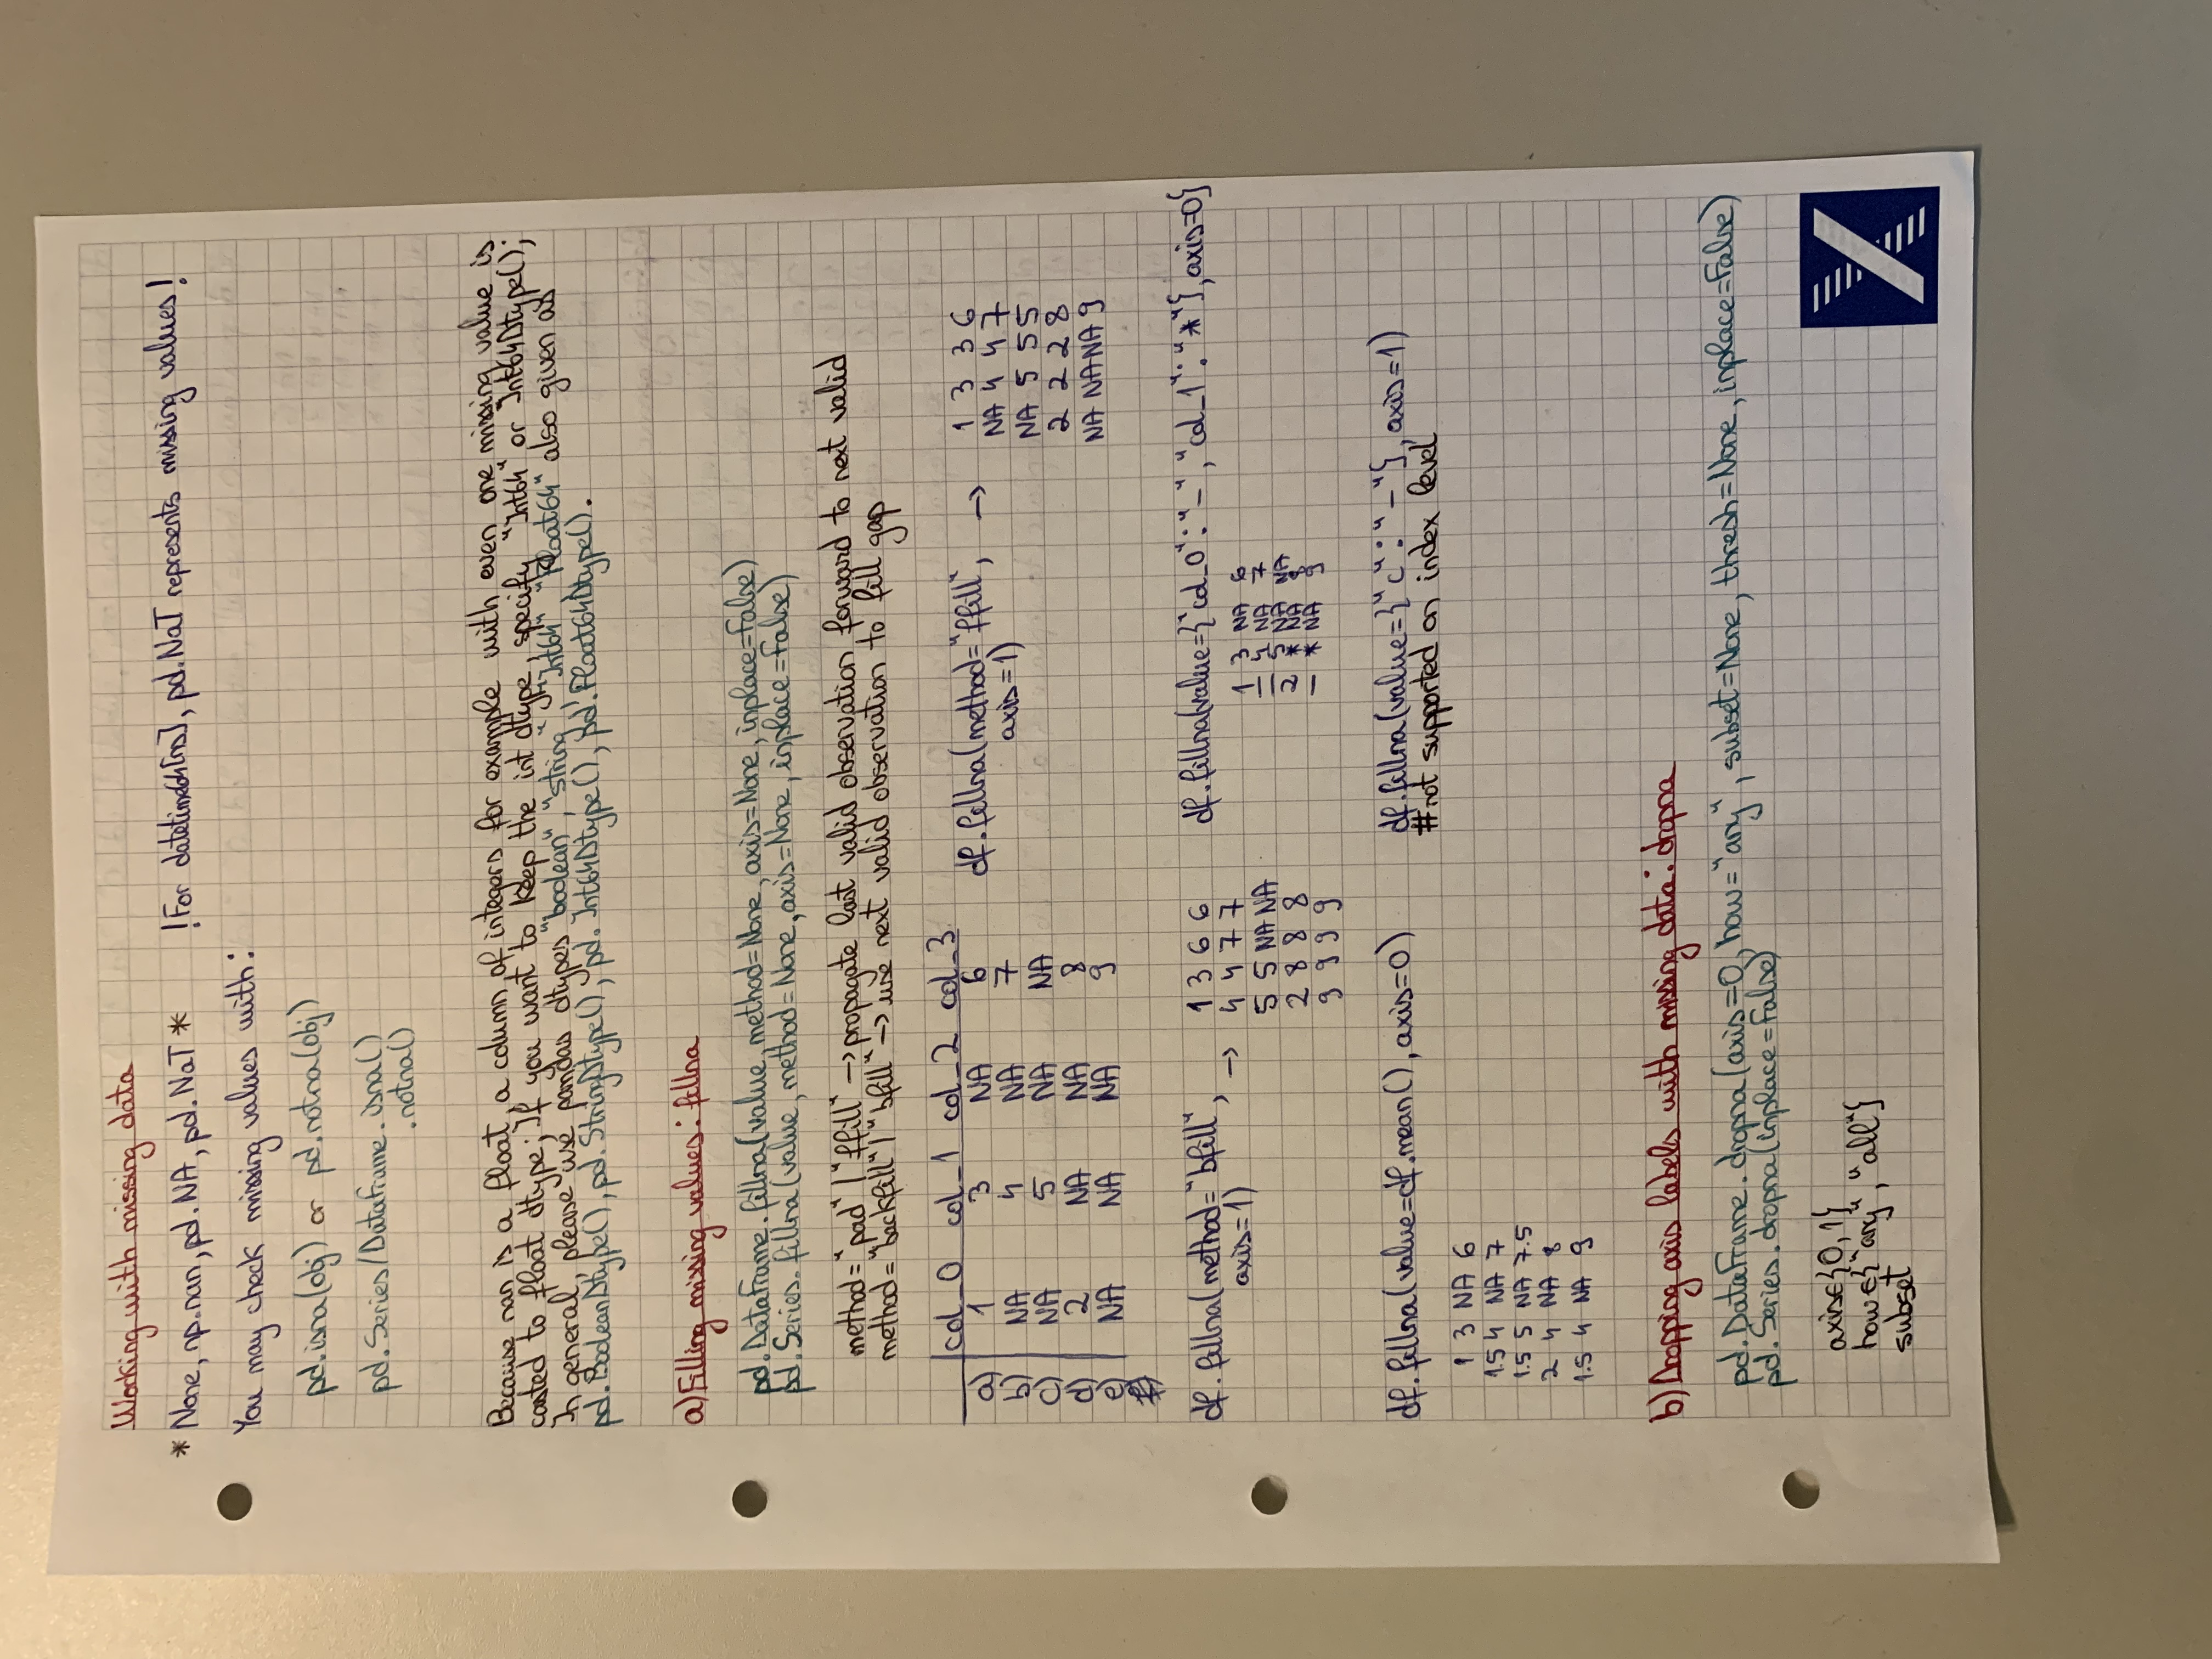 Working with missing data
* None, np.nan, pd.NA, pd.NaT * !For datetime64[ns], pd.NaT represents missing values!
You may check missing values with:
pd.isna(obj) or pd.notna(obj)
pd.Series/DataFrame.isna()
.notna()
Because nan is a float, a column of integers for example with even one missing value is
casted to float dtype; If you want to keep the int dtype, specify "Int64" or Int64Dtype();
In general, please use pandas dtypes "boolean", "string", "Int64", "Float64" also given as
pd.BooleanDtype(), pd.StringDtype(), pd.Int64Dtype(), pd.Float64Dtype().
a) Filling missing values: fillna
pd.DataFrame.fillna(value, method=None, axis=None, inplace=False)
pd.Series.fillna(value, method=None, axis=None, inplace=False)
method="pad" | "ffill" → propagate last valid observation forward to next valid
method="backfill" | "bfill" → use next valid observation to fill gap
col_0 col_1 col_2 col_3
a) 1 3 NA 6
b) NA 4 NA 7
c) NA 5 NA NA
d) 2 NA NA 8
e) NA NA NA 9
df.fillna(method="ffill", →
axis=1)
1 3 3 6
NA 4 4 7
NA 5 5 5
2 2 2 8
NA NA NA 9
df.fillna(method="bfill",
axis=1) →
1 3 6 6
4 4 7 7
5 5 NA NA
2 8 8 8
9 9 9 9
df.fillna(value={"col_0": "-", "col_1": "*"}, axis=0}
1 3 NA 6
- 4 NA 7
- 5 NA NA
2 * NA 8
- * NA 9
df.fillna(value=df.mean(), axis=0)
1 3 NA 6
1.5 4 NA 7
1.5 5 NA 7.5
2 4 NA 8
1.5 4 NA 9
df.fillna(value={"c": "-"}, axis=1)
#not supported on index level
b) Dropping axis labels with missing data: dropna
pd.DataFrame.dropna(axis=0, how="any", subset=None, thresh=None, inplace=False)
pd.Series.dropna(inplace=False)
axis∈{0,1}
how∈{"any", "all"}
subset